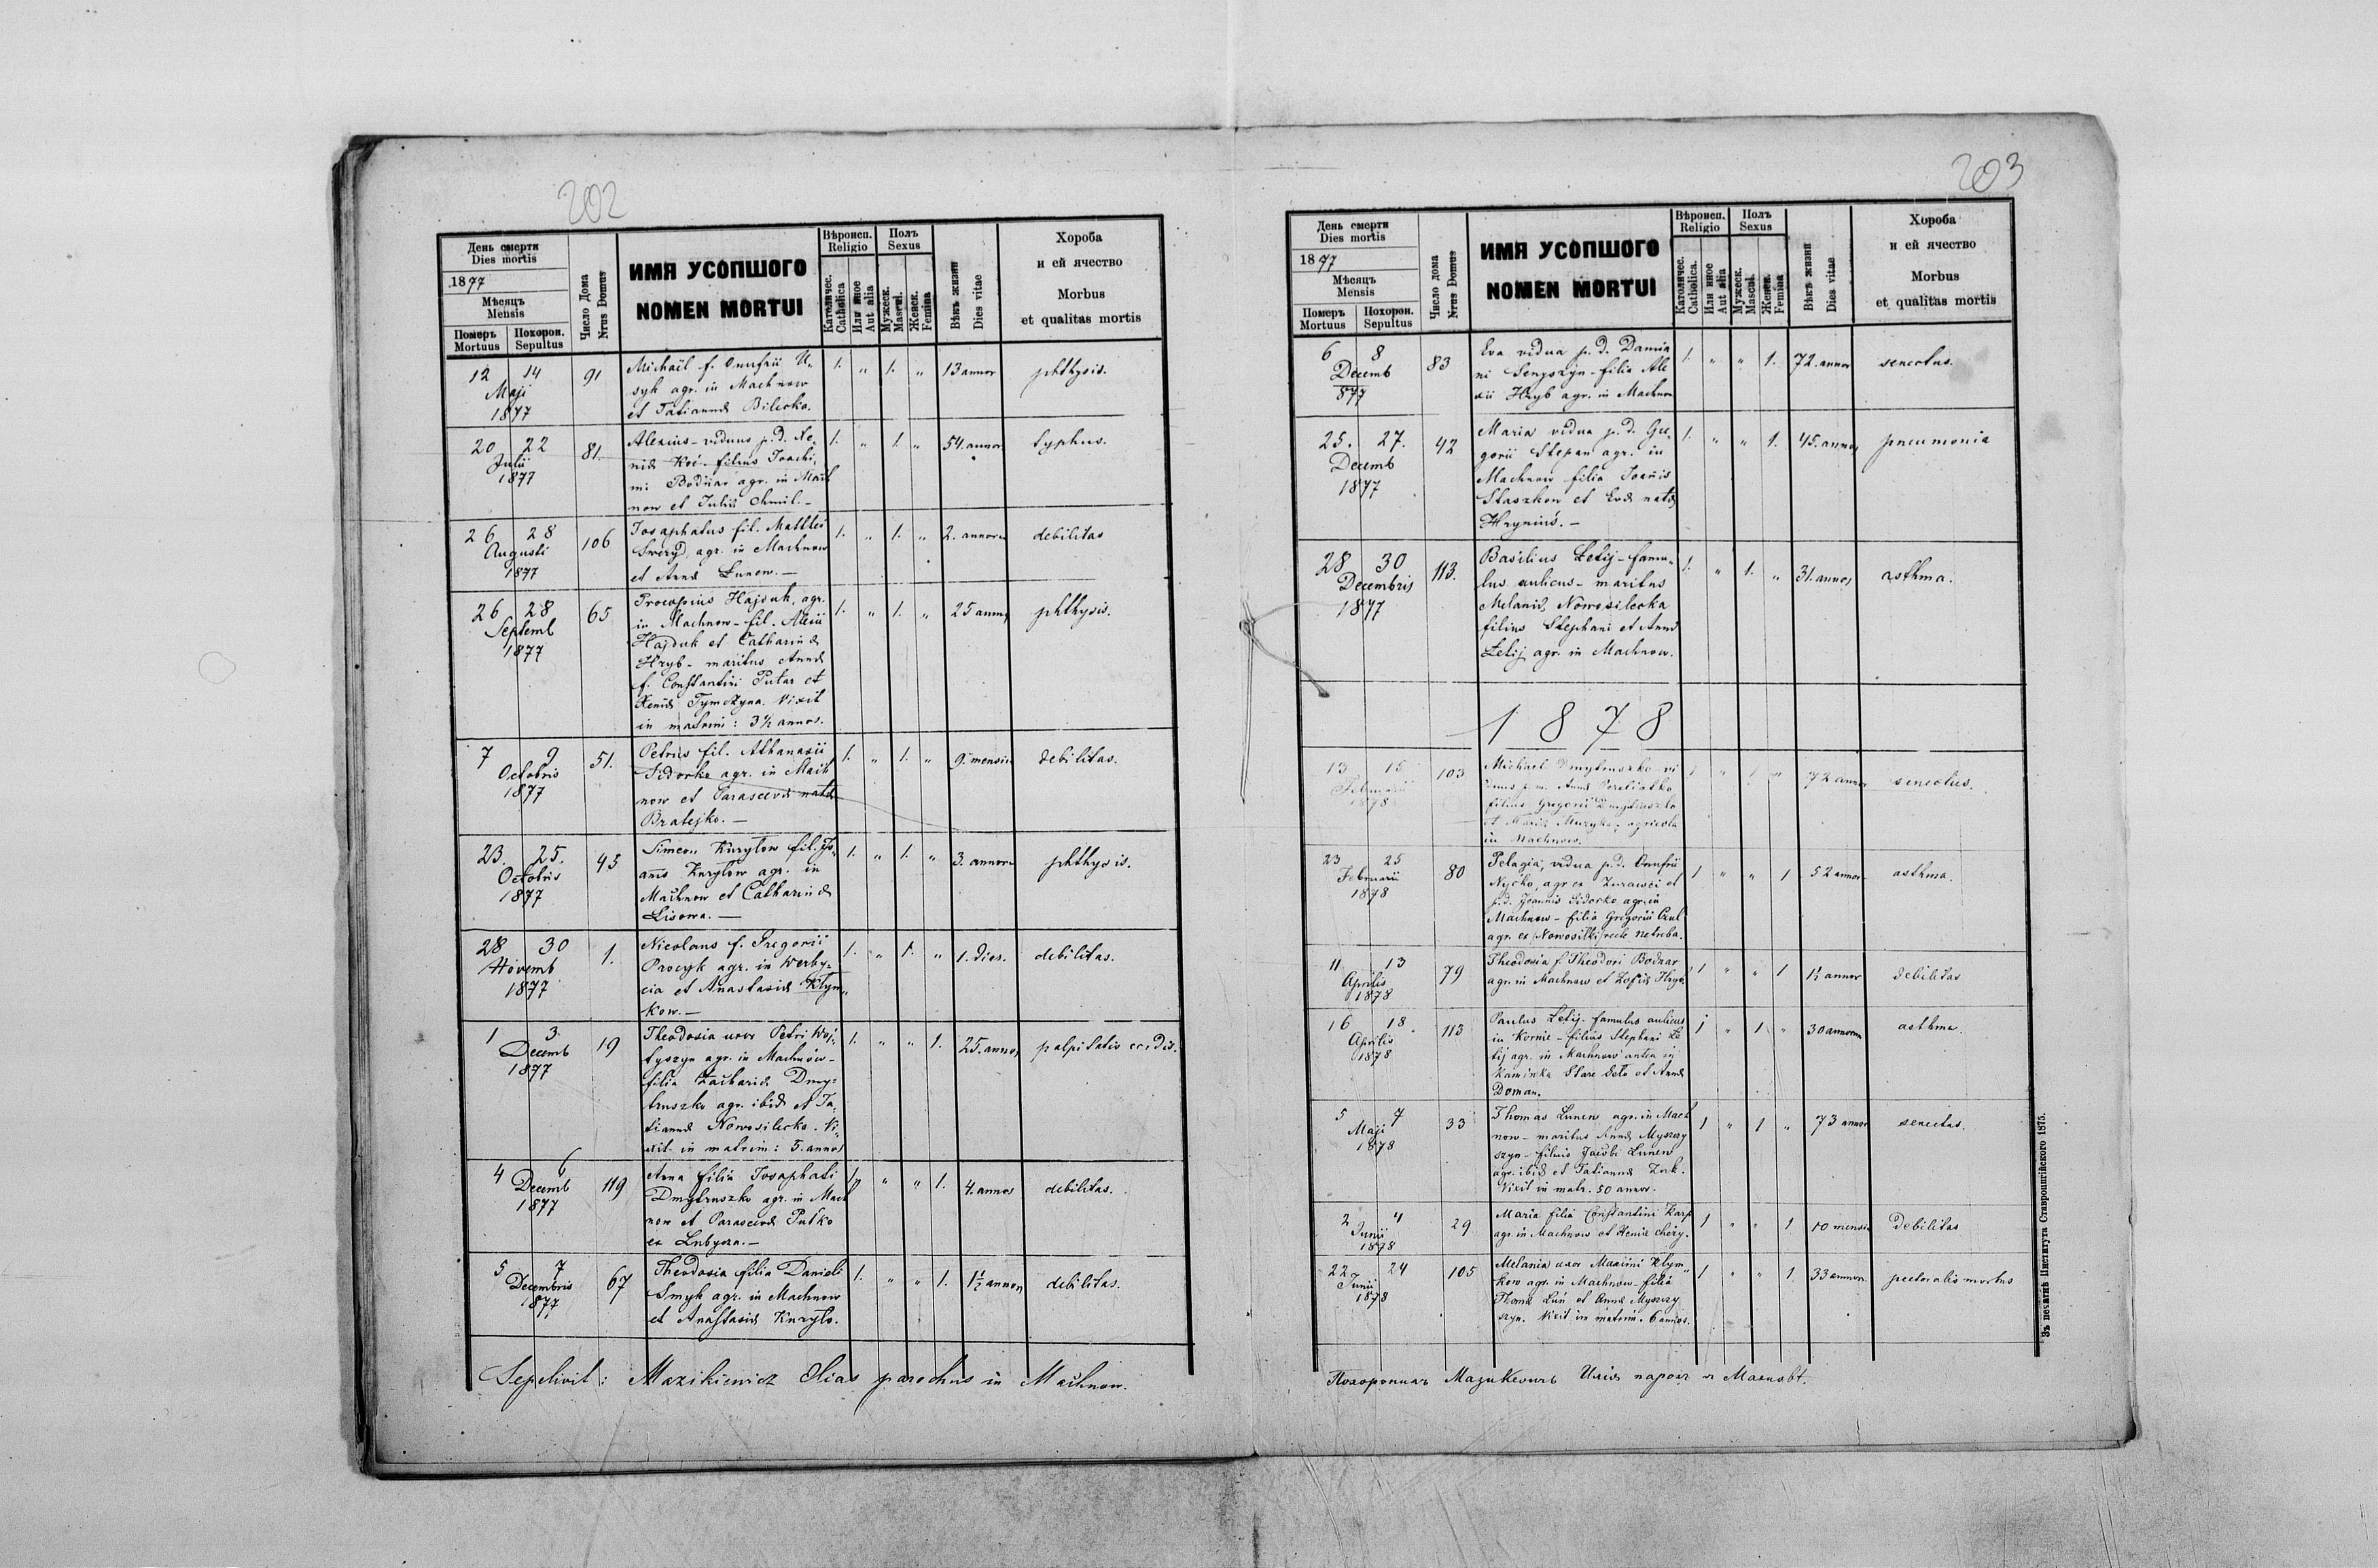 202
День смерти
Dies mortis
1877
Мѣсяцъ
Mensis
Померъ Похорон.
Mortuus Sepultus
Число Дома
Nrus Domus
ИМЯ УСОПШОГО
NOMEN MORTUI
Вѣроисп.
Religio
Католичес.
Catholica
Или иное
Aut alia
Полъ
Sexus
Мужеск.
Mascul.
Женск.
Femina
Вѣкъ жизни
Dies vitae
Хороба
и ей ячество
Morbus
et qualitas mortis
12 14
Maji
1877
91
Michaël f. Onufrii U-
syk agr. in Machnow
et Tatiannæ Bilecka.
1. " 1. " 13 annor phthysis.
20 22
Julii
1877
81.
Alexius - viduus p. d. Xe-
niæ Koć. filius Joachi-
mi Bodnar agr. in Mach
now et Juliæ Chmil. -
1. " 1. " 54. annor typhus.
26 28
Augusti
1877
106
Josaphatus fil. Matthei
agr. in Machnow
et Annæ Lunew. -
1. " 1. " 2. annorum debilitas
26 28
Septemb
1877
65
Procopius Hajduk, agr.
in Machnow - fil. Alexii
Hajduk et Catharinæ
Hryb - maritus Annæ
f. Constantini Putar et
Xeniæ Tymczyna. Vixit
in matrim: 3 ½ annos.
1. " 1. " 25 annos phthysis.
7 9
Octobris
1877
51.
Petrus fil. Athanasii
Sidorko agr. in Mach
now et Parasceviæ natæ
Bratejko. -
1. " 1. " 9. mensium debilitas.
23. 25.
Octobris
1877
43
Simeon Kuryłow fil. Jo-
anis Kuryłow agr. in
Machnow et Catharinæ
Lisowa. -
1. " 1. " 3. annorum phthysis.
28 30
Novemb
1877
1.
Nicolaus f. Gregorii
Procyk agr. in Werby-
cia et Anastasiæ Klym-
kow. -
1. " 1. " 1. dies. debilitas.
1 3
Decemb
1877
19
Theodosia uxor Petri Woj-
tyszyn agr. in Machnow -
filia Zachariæ Dmy-
truszko agr. ibid. et Ta-
tiannæ Nowosilecka. Vi-
xit in matrim: 5. annos
1. " " 1. 25. annos palpitatio cordis.
4 6
Decemb
1877
119
Anna filia Josaphati
Dmytruszko agr. in Mach
now et Parasceviæ Putko
ex Lubycza. -
1. " " 1. 4. annos debilitas.
5 7
Decembris
1877
67
Theodosia filia Danieli
Smyk agr. in Machnow
et Anastasiæ Kuryło.
1. " " 1. 1½ annor debilitas.
Sepelivit: Mazikiewicz Elias parochus in Machnow.
203
День смерти
Dies mortis
1877
Мѣсяцъ
Mensis
Померъ Похорон.
Mortuus Sepultus
Число дома
Nrus Domus
ИМЯ УСОПШОГО
NOMEN MORTUI
Вѣроисп.
Religio
Католичес.
Catholica.
Или иное
Aut alia
Полъ
Sexus
Мужеск.
Mascul.
Женск.
Femina
Вѣкъ жизни
Dies vitae
Хороба
и ей ячество
Morbus
et qualitas mortis
6 8
Decemb
877
83
Eva vidua p. d. Damia
ni Senyszyn - filia Ale
xii Hryb agr. in Machnow
1. " " 1. 72. annor senectus.
25. 27.
Decemb
1877
42
Maria vidua p. d. Gre-
gorii Stepan agr. in
Machnow filia Joannis
Staszkow et Evæ natæ
Hryniuś. -
1. " " 1. 45. annos pneumonia
28 30
Decembris
1877
113.
Basilius Letij - famu-
lus aulicus - maritus
Melaniæ Nowosilecka
filius Stephani et Annæ
Letij agr. in Machnow.
1. " 1. " 31. annos asthma.
1878
13 15
Februarii
1878
103
Michael Dmytruszko vi
duus p. m. Annæ
filius Gregorii Dmytruszko
et Mariæ Muzyka, agricola
in Machnow.
1 " 1 " 72 annor senectus.
23 25
Februarii
1878
80
Pelagia, vidua p. d. Onufrii
Nycko, agr ex Zurawci et
p. d. Joannis Sidorko agr. in
Machnow - filia Gregorii Czul
agr. ex Nowosilki recte Netreba.
1 " " 1 52 annor asthma.
11 13
Aprilis
1878
79
Theodosia f. Theodori Bodnar
agr. in Machnow et Zofiæ Hryb.
1 " " 1 1½ annor debilitas
16 18
Aprilis
1878
113
Paulus Letij - famulus aulicus
in Kornie - filius Stephani Le
tij agr. in Machnow antea in
Kaminka Stare Seło et Annæ
Doman.
1 " 1 " 30 annorum asthma.
5 7
Maji
1878
33
Thomas Lunew agr. in Mach
now - maritus Annæ Myszczy
szyn - filius Jacobi Lunew
agr. ibid. et Tatiannæ Zuk.
Vixit in matr. 50 annos.
1 " 1 " 73 annor senectus.
2 4
Junii
1878
29
Maria filia Constantini Karp
agr. in Machnow et Xeniæ
1 " " 1 10 mensium debilitas
22 24
Junii
1878
105
Melania uxor Maximi Klym-
kow agr. in Machnow - filia
Thomæ Lun et Annæ Myszczy
szyn. Vixit in matrim. 6 annos.
1 " " 1 33 annor. pectoralis morbus
Похоронилъ Мазикевичь Илія парохъ в Махновѣ.
Зъ печатнѣ Института Ставропигійского 1875.